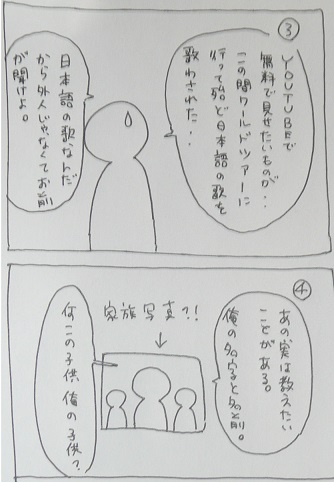 ③
YOUTUBEで
無料で見せたいものが・・
この間ワールドツアーに
行って殆ど日本語の歌を
歌わされた・・
日本語の歌なんだ
から外人じゃなくてお前
が聞けよ。
④
あの実は教えたい
ことがある。
俺の名字と名前。
家族写真?!
↓
何この子供俺の子供?